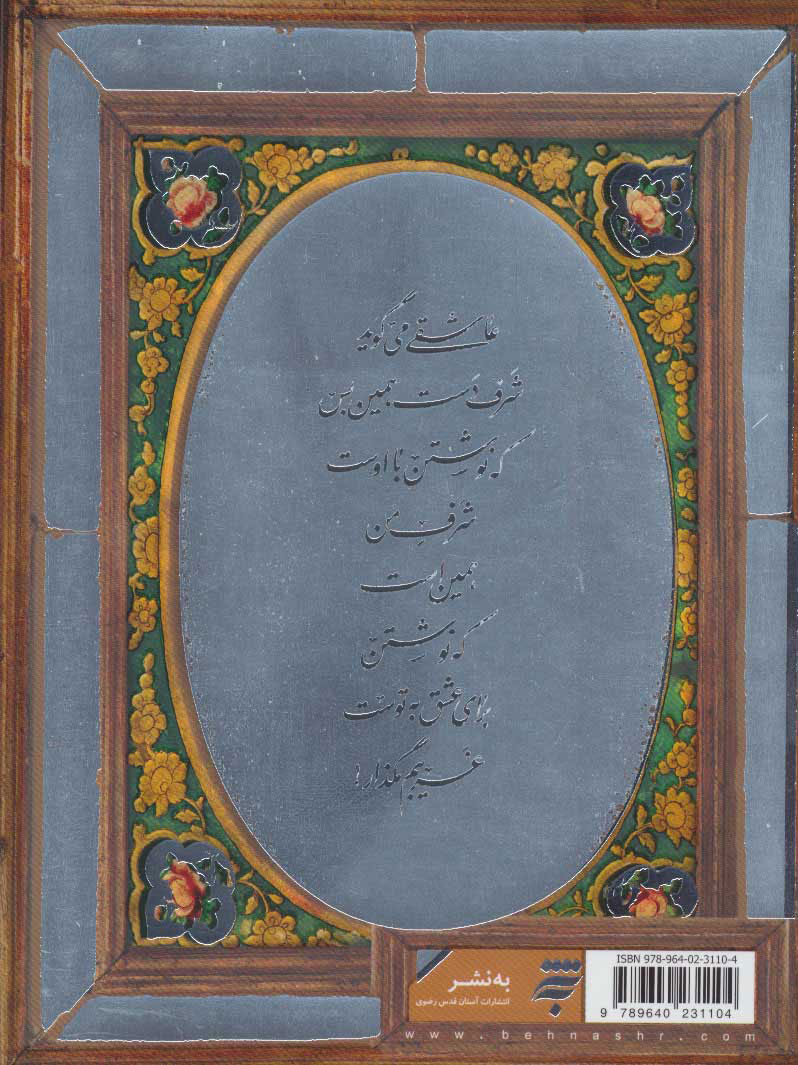 عاشقی می گوید
شَرَف دَست همین بس
که نوشتن با اوست
شرفِ من
همین است
که نوشتن
برای عشق به توست
غریبم مگذار!
ISBN 978-964-02-3110-4
به‌نشر
انتشارات آستان قدس رضوی
9 789640 231104
www.behnashr.com